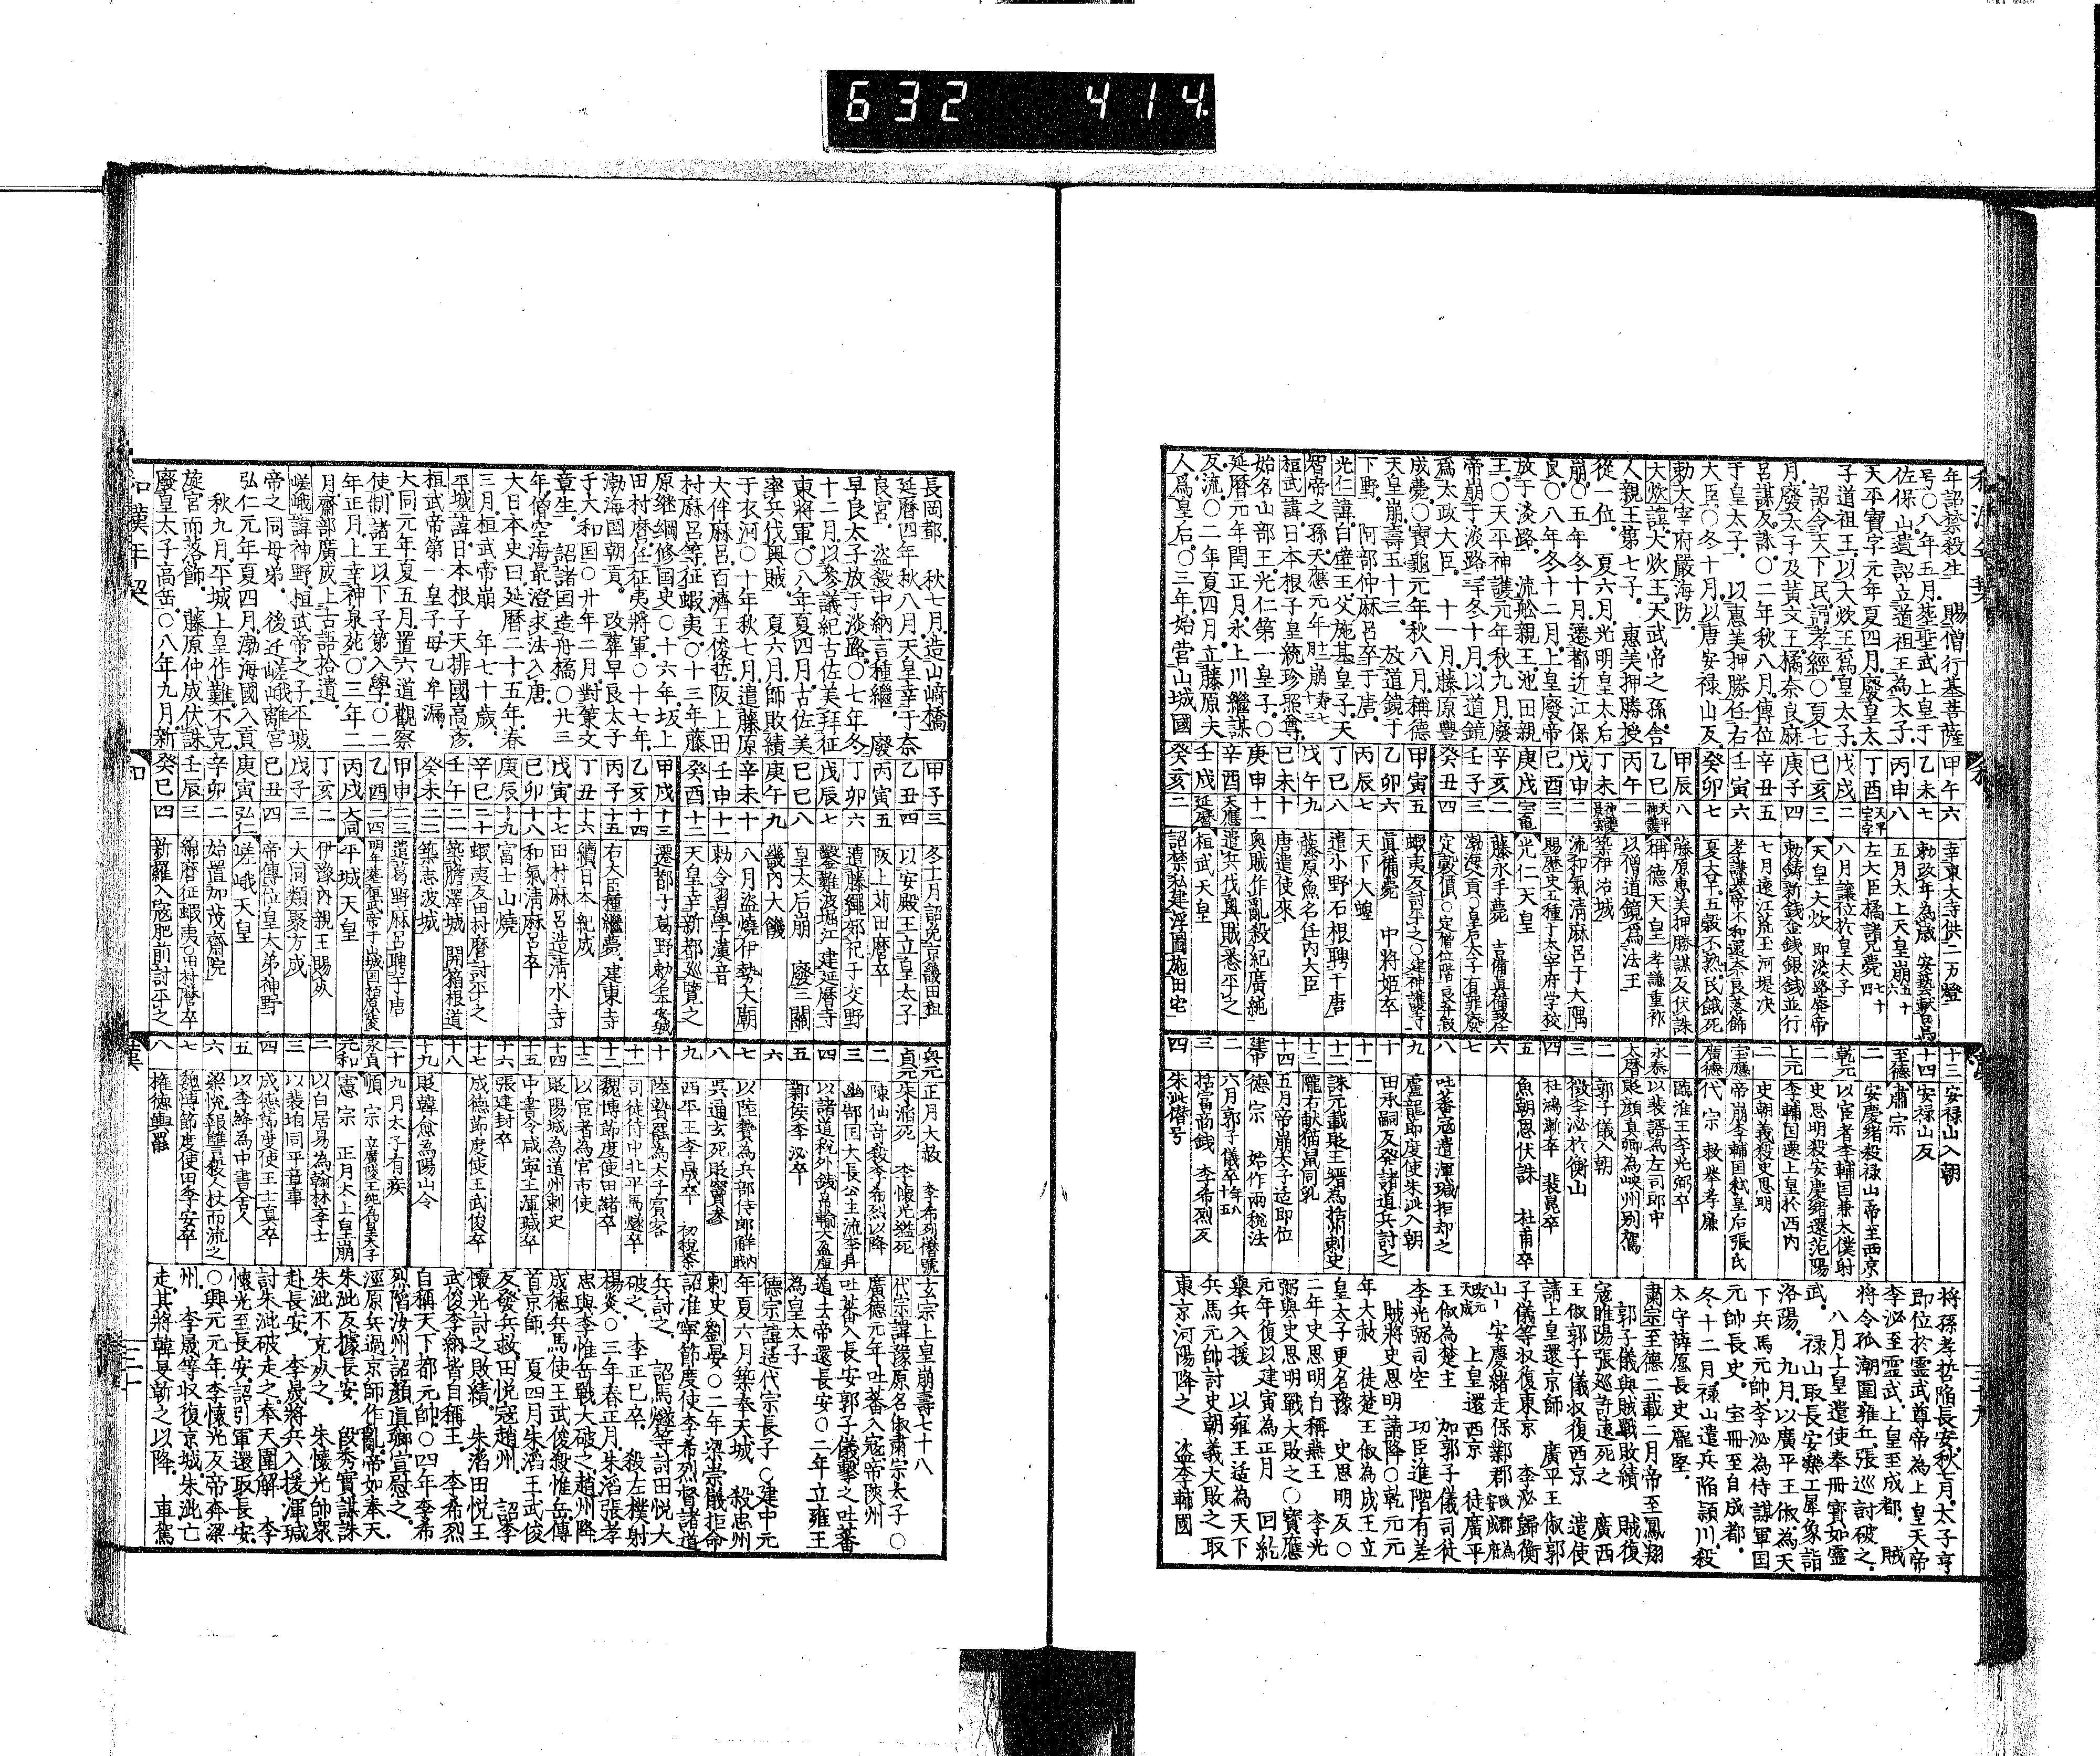 632 414
和漢年契
年詔禁殺生 賜僧行基菩薩
号○八年五月葬聖武上皇于
佐保山遺詔立道祖王為太子
天平寶字元年夏四月廢皇太
子道祖王以大炊王爲皇太子
詔令天下民誦孝經○夏七
月廢太子及黃文王橘奈良麻
呂謀反誅○二年秋八月傳位
于皇太子 以惠美押勝任右
大臣○冬十月以唐安祿山反
勅大宰府嚴海防
大炊諱大炊王天武帝之孫舎
人親王第七子 惠美押勝授
從一位 夏六月光明皇太后
崩○五年冬十月遷都近江保
良○八年冬十二月上皇廢帝
放于淡路 流舩親王池田親
王○天平神護元年秋九月廢
帝崩于淡路三冬十月以道鏡
爲太政大臣 十一月藤原豊
成薨○寶龜元年秋八月稱德
天皇崩壽五十三 放道鏡于
下野 阿部仲麻呂卒于唐
光仁諱白壁王父施基皇子天
智帝之孫天應元年 崩寿七十三
桓武諱日本根子皇統珍照尊
始名山部王光仁第一皇子○
延曆元年閏正月氷上川繼謀
反流○二年夏四月立藤原夫
人爲皇后○三年始營山城國
和
甲午 六 幸東大寺供二万燈
乙未 七 勅改年為歳 安藝献白烏
丙申 八 五月太上天皇崩五十六
丁酉 天平宝字 左大臣橘諸兄薨七十四
戊戌 二 八月讓位於皇太子
己亥 三 天皇大炊 即淡路廢帝
庚子 四 勅鋳新銭金銭銀銭並行
辛丑 五 七月遠江荒玉河堤决
壬寅 六 孝謙與帝不和還奈良落飾
癸卯 七 夏大旱五穀不熟民餓死
甲辰 八 藤原惠美押勝謀反伏誅
乙巳 天平神護 稱德天皇 孝謙重祚
丙午 二 以僧道鏡爲法王
丁未 神護景雲 築伊治城
戊申 二 流和氣清麻呂于大隅
己酉 三 賜歷史五種于太宰府学校
庚戌 宝亀 光仁天皇
辛亥 二 藤永手薨 吉備真備致仕
壬子 三 渤海入貢○皇后太子有罪廢
癸丑 四 定穀價○定僧位階 良弁寂
甲寅 五 蝦夷反討平之○建神護寺
乙卯 六 眞備薨 中將姫卒
丙辰 七 天下大蝗
丁巳 八 遣小野石根聘于唐
戊午 九 藤原魚名任内大臣
己未 十 唐遣使來
庚申 十一 奥賊作亂殺紀廣純
辛酉 天應 遣兵伐奥賊悉平之
壬戌 延曆 桓武天皇
癸亥 二 詔禁私建浮圖施田宅
漢
十三 安禄山入朝
十四 安禄山反
至德 肅宗
二 安慶緒殺禄山帝至西京
乾元 以宦者李輔国兼太僕射
二 史思明殺安慶緒還范陽
上元 李輔国遷上皇於西内
二 史朝義殺史思明
宝應 帝崩李輔国弑皇后張氏
廣德 代宗 救挙孝廉
二 臨淮王李光弼卒
永泰 以裴諝為左司郎中
大曆 貶顔真卿為峽州別駕
二 郭子儀入朝
三 徴李泌於衡山
四 杜鴻漸卒 裴冕卒
五 魚朝恩伏誅 杜甫卒
六
七
八 吐蕃寇邊渾瑊拒却之
九 盧龍節度使朱泚入朝
十 田承嗣反發諸道兵討之
十一
十二 誅元載貶王縉為括州刺史
十三 隴右献猫鼠同乳
十四 五月帝崩太子适即位
建中 德宗 始作兩税法
二 六月郭子儀卒年八十五
三 括富商銭 李希烈反
四 朱泚僭号
将孫孝哲陥長安秋七月太子亨
即位於霊武尊帝為上皇天帝
李泌至霊武上皇至成都 賊
将令孤潮圍雍丘張巡討破之
八月上皇遣使奉冊寶如霊
武 禄山取長安樂工犀象詣
洛陽 九月以廣平王俶為天
下兵馬元帥李泌為侍謀軍国
元帥長史 宝冊至自成都
冬十二月禄山遣兵陥頴川殺
太守薛愿長史龐堅
肅宗至德二載二月帝至鳳翔
郭子儀與賊戰敗績 賊復
寇睢陽張巡許遠死之 廣西
王俶郭子儀収復西京 遣使
請上皇還京師 廣平王俶郭
子儀等収復東京 李泌歸衡
山 安慶緒走保鄴郡
上皇還西京 徒廣平
王俶為楚王 加郭子儀司徒
李光弼司空 功臣進階有差
賊將史思明請降○乾元元
年大赦 徒楚王俶為成王立
皇太子更名豫 史思明反○
二年史思明自稱燕王 李光
弼與史思明戰大敗之○寶應
元年復以建寅為正月 回紇
擧兵入援 以雍王适為天下
兵馬元帥討史朝義大敗之取
東京河陽降之 盗李輔國
三十九
長岡都 秋七月造山崎橋
延曆四年秋八月天皇幸于奈
良宮 盗殺中納言種繼 廢
早良太子放于淡路○七年冬
十二月以參議紀古佐美拜征
東將軍○八年夏四月古佐美
率兵伐奥賊 夏六月師敗績
于衣河○十年秋七月遣藤原
大伴麻呂百濟王俊哲阪上田
村麻呂等征蝦夷○十三年藤
原継綱修国史○十六年坂上
田村麿任征夷將軍○十七年
渤海国朝貢 改葬早良太子
于大和国○廿年二月對策文
章生 詔諸国造舟橋○廿三
年僧空海最澄求法入唐
大日本史曰延曆二十五年春
三月桓武帝崩 年七十歳
平城諱日本根子天排國高彦
桓武帝第一皇子母乙牟漏
大同元年夏五月置六道觀察
使制諸王以下子第入學○二
年正月上幸神泉苑○三年二
月齋部廣成上古語拾遺
嵯峨諱神野桓武帝之子平城
帝之同母弟 後近嵯峨離宮
弘仁元年夏四月渤海國入貢
秋九月平城上皇作難不克
旋宮而落飾 藤原仲成伏誅
廢皇太子高岳○八年九月新
和
甲子 三 冬十月詔免京畿田租
乙丑 四 以安殿王立皇太子
丙寅 五 阪上苅田麿卒
丁卯 六 遣藤繩郊祀于交野
戊辰 七 鑿難波堀江 建延曆寺
己巳 八 皇太后崩 廢三關
庚午 九 畿内大饑
辛未 十 八月盗燒伊勢大廟
壬申 十一 勅令習學漢音
癸酉 十二 天皇幸新都巡覽之
甲戌 十三 遷都于葛野勅名平安城
乙亥 十四
丙子 十五 右大臣種繼薨 建東寺
丁丑 十六 續日本紀成
戊寅 十七 田村麻呂造清水寺
己卯 十八 和氣清麻呂卒
庚辰 十九 富士山燒
辛巳 二十 蝦夷反田村麿討平之
壬午 二一 築膽澤城 開箱根道
癸未 二二 築志波城
甲申 二三 遣葛野麻呂聘于唐
乙酉 二四
丙戌 大同 平城天皇
丁亥 二 伊豫内親王賜死
戊子 三 大同類聚方成
己丑 四 帝傳位皇太弟神野
庚寅 弘仁 嵯峨天皇
辛卯 二 始置加茂齋院
壬辰 三 綿麿征蝦夷○田村麿卒
癸巳 四 新羅入寇肥前討平之
漢
興元 正月大赦 李希烈僭號
貞元 朱滔死 李懷光縊死
二 陳仙奇殺李希烈以降
三 幽郜国大長公主流李昇
四 以諸道税外銭帛輸大盈庫
五 鄴侯李泌卒
六
七 以陸贄為兵部侍郎解内職
八 呉通玄死貶竇參
九 西平王李晟卒 初税茶
十 陸贄罷為太子賓客
十一 司徒侍中北平馬燧卒
十二 魏博節度使田緒卒
十三 以宦者為宮市使
十四 貶陽城為道州刺史
十五 中書令咸寧王渾瑊卒
十六 張建封卒
十七 成德節度使王武俊卒
十八
十九 貶韓愈為陽山令
二十 九月太子有疾
永貞 順宗 立廣陵王純為皇太子
元和 憲宗 正月太上皇崩
二 以白居易為翰林学士
三 以裴垍同平章事
四 成德節度使王士真卒
五 以李絳為中書舎人
六 梁悦報讐殺人杖而流之
七 魏博節度使田季安卒
八 権德輿罷
玄宗上皇崩壽七十八
代宗諱豫原名俶肅宗太子○
廣德元年吐蕃入寇帝陝州
吐蕃入長安郭子儀撃之吐蕃
遁去帝還長安○二年立雍王
為皇太子
德宗諱适代宗長子○建中元
年夏六月築奉天城 殺忠州
刺史劉晏○二年梁崇儀拒命
詔准寧節度使李希烈督諸道
兵討之 詔馬燧等討田悦大
破之 李正巳卒 殺左樸射
楊炎○三年春正月朱滔張孝
忠與李惟岳戰大破之趙州降
成德兵馬使王武俊殺惟岳傳
首京師 夏四月朱滔王武俊
反發兵救田悦寇趙州 詔李
懷光討之敗績 朱滔田悦王
武俊李納皆自稱王 李希烈
自稱天下都元帥○四年李希
烈陥汝州詔顔眞卿宣慰之
涇原兵過京師作亂帝如奉天
朱泚反據長安 段秀實謀誅
朱泚不克死之 朱懷光帥衆
赴長安 李晟將兵入援渾瑊
討朱泚破走之奉天圍解 李
懷光至長安詔引軍還取長安
○興元元年李懷光反帝奔梁
州 李晟等収復京城朱泚亡
走其將韓旻斬之以降 車駕
和漢年契
三十